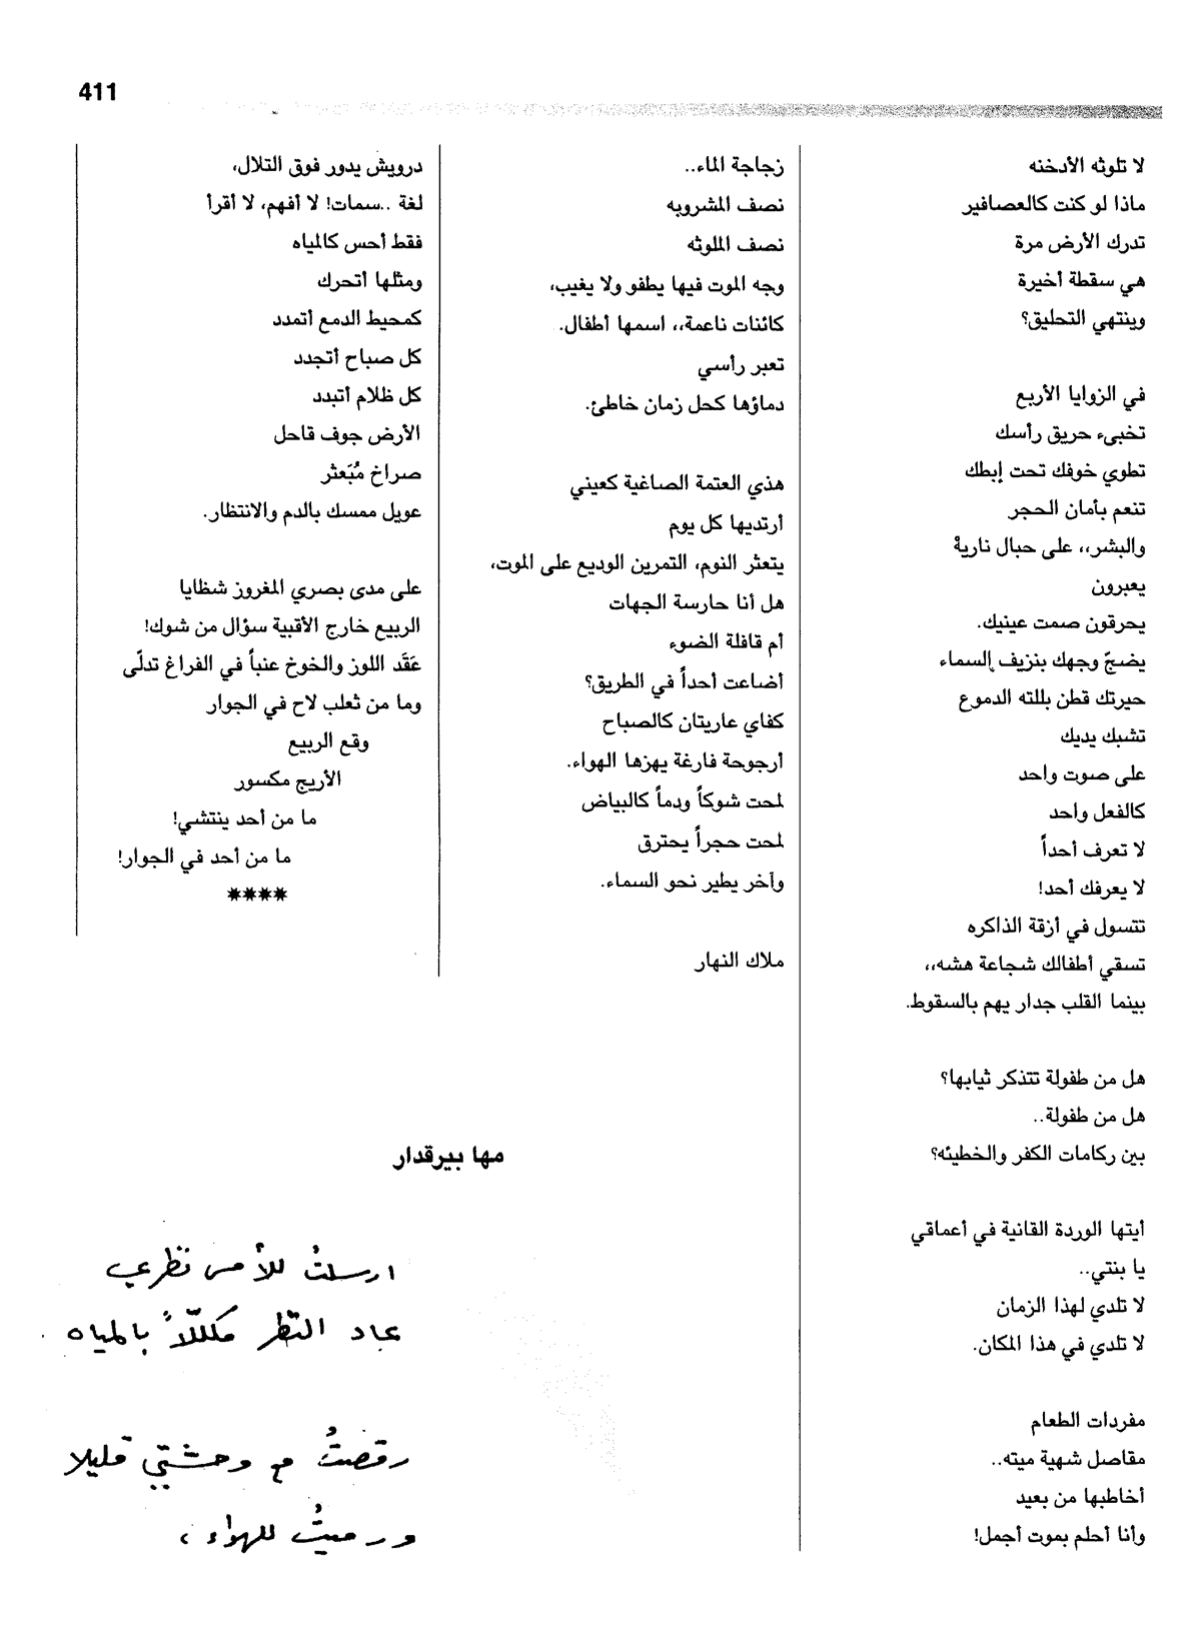 411
لا تلوثه الأدخنه
ماذا لو كنت كالعصافير
تدرك الأرض مرة
هي سقطة أخيرة
وينتهي التحليق؟
في الزوايا الأربع
تخبىء حريق رأسك
تطوي خوفك تحت إبطك
تنعم بأمان الحجر
والبشر،، على حبال ناريةْ
يعبرون
يحرقون صمت عينيك.
يضجّ وجهك بنزيف السماء
حيرتك قطن بللته الدموع
تشبك يديك
على صوت واحد
كالفعل واحد
لا تعرف أحداً
لا يعرفك أحد!
تتسول في أزقة الذاكره
تسقي أطفالك شجاعة هشه،،
بينما القلب جدار يهم بالسقوط.
هل من طفولة تتذكر ثيابها؟
هل من طفولة..
بين ركامات الكفر والخطيئه؟
أيتها الوردة القانية في أعماقي
يا بنتي..
لا تلدي لهذا الزمان
لا تلدي في هذا المكان.
مفردات الطعام
مقاصل شهية ميته..
أخاطبها من بعيد
وأنا أحلم بموت أجمل!
زجاجة الماء..
نصف المشروبه
نصف الملوثه
وجه الموت فيها يطفو ولا يغيب،
كائنات ناعمة،، اسمها أطفال.
تعبر رأسي
دماؤها كحل زمان خاطئ.
هذي العتمة الصاغية كعيني
أرتديها كل يوم
يتعثر النوم، التمرين الوديع على الموت،
هل أنا حارسة الجهات
أم قافلة الضوء
أضاعت أحداً في الطريق؟
كفاي عاريتان كالصباح
أرجوحة فارغة يهزها الهواء.
لمحت شوكاً ودماً كالبياض
لمحت حجراً يحترق
وآخر يطير نحو السماء.
ملاك النهار
درويش يدور فوق التلال،
لغة ..سمات! لا أفهم، لا أقرأ
فقط أحس كالمياه
ومثلها أتحرك
كمحيط الدمع أتمدد
كل صباح أتجدد
كل ظلام أتبدد
الأرض جوف قاحل
صراخ مُبَعثر
عويل ممسك بالدم والانتظار.
على مدى بصري المغروز شظايا
الربيع خارج الأقبية سؤال من شوك!
عَقَد اللوز والخوخ عنباً في الفراغ تدلّى
وما من ثعلب لاح في الجوار
وقع الربيع
الأريج مكسور
ما من أحد ينتشي!
ما من أحد في الجوار!
****
مها بيرقدار
ارسلتُ للأمس نظري
عاد النظر مكللاً بالمياه
رقصتُ مع وحشتي قليلا
ورميتُ للهواء،